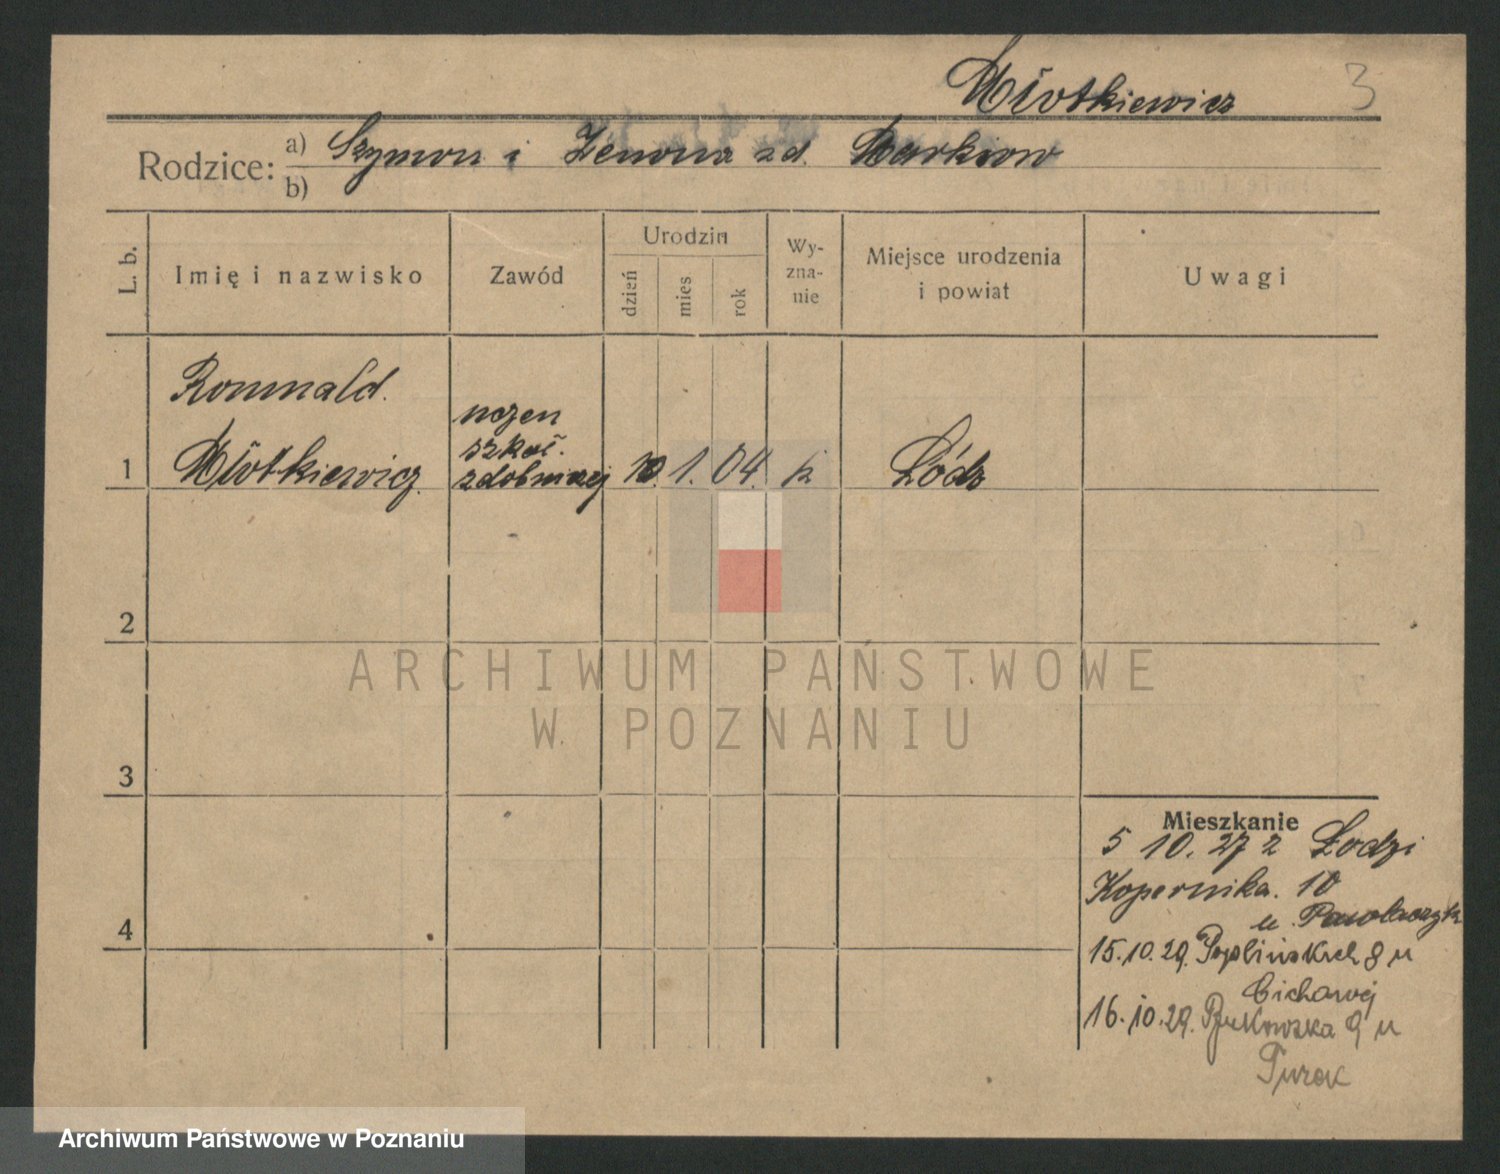 Młotkiewicz 3
Rodzice: a) Szymon i Zenona zd. Markow
b)
L. b. Imię i nazwisko Zawód Urodzin dzień mies rok Wyznanie Miejsce urodzenia i powiat Uwagi
Romuald
uczen
szkoł.
1 Młotkiewicz zdobniczej 10. 1. 04. k Łódz
2
ARCHIWUM PAŃSTWOWE
W POZNANIU
3
Mieszkanie
5 10. 27 z Łodzi
Kopernika. 10
u. Pawlaczyk
4
15.10.29. 8 u
Cichowej
16.10.29. Bukowska 9 u
Turek
Archiwum Państwowe w Poznaniu